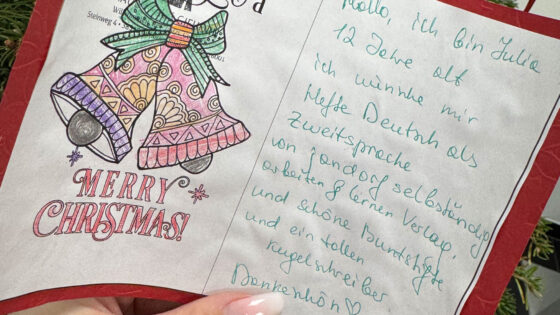 Steinweg 4
MERRY
CHRISTMAS!
Hallo, ich bin Julia
12 Jahre alt
ich wünsche mir
Hefte Deutsch als
Zweitsprache
von jandorf selbständig
arbeiten & lernen Verlag,
und schöne Buntstifte
und ein tollen
Kugelschreiber
Dankeschön ♡